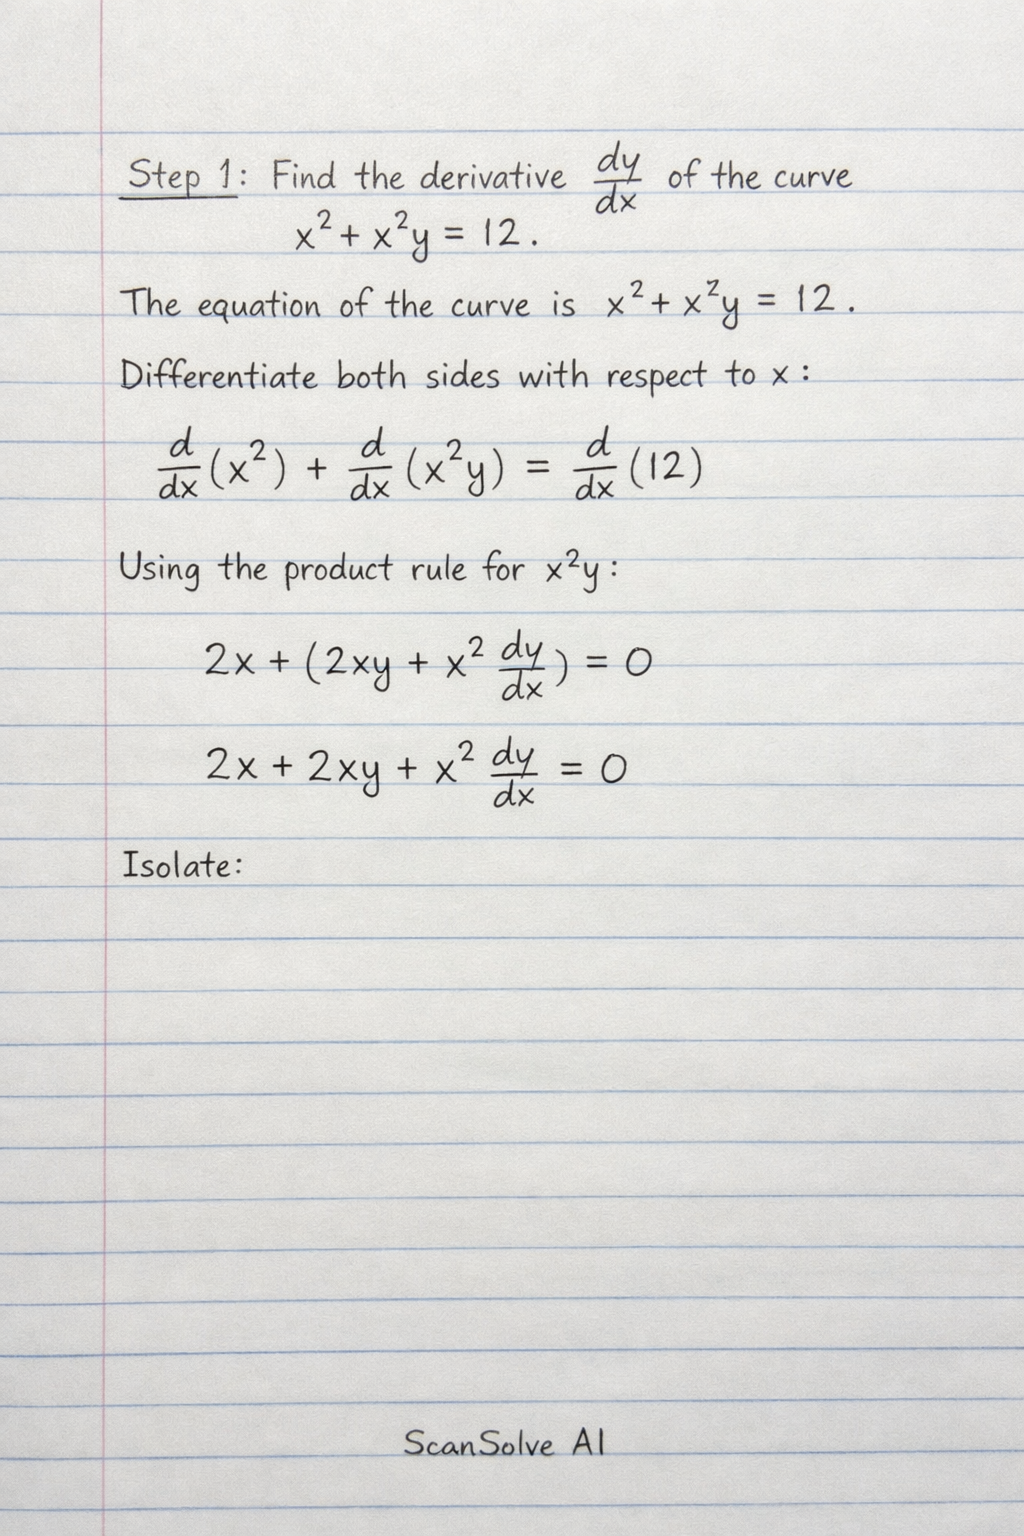 Step 1: Find the derivative dy/dx of the curve
x² + x²y = 12.
The equation of the curve is x² + x²y = 12.
Differentiate both sides with respect to x:
d/dx (x²) + d/dx (x²y) = d/dx (12)
Using the product rule for x²y:
2x + (2xy + x² dy/dx) = 0
2x + 2xy + x² dy/dx = 0
Isolate:
ScanSolve AI